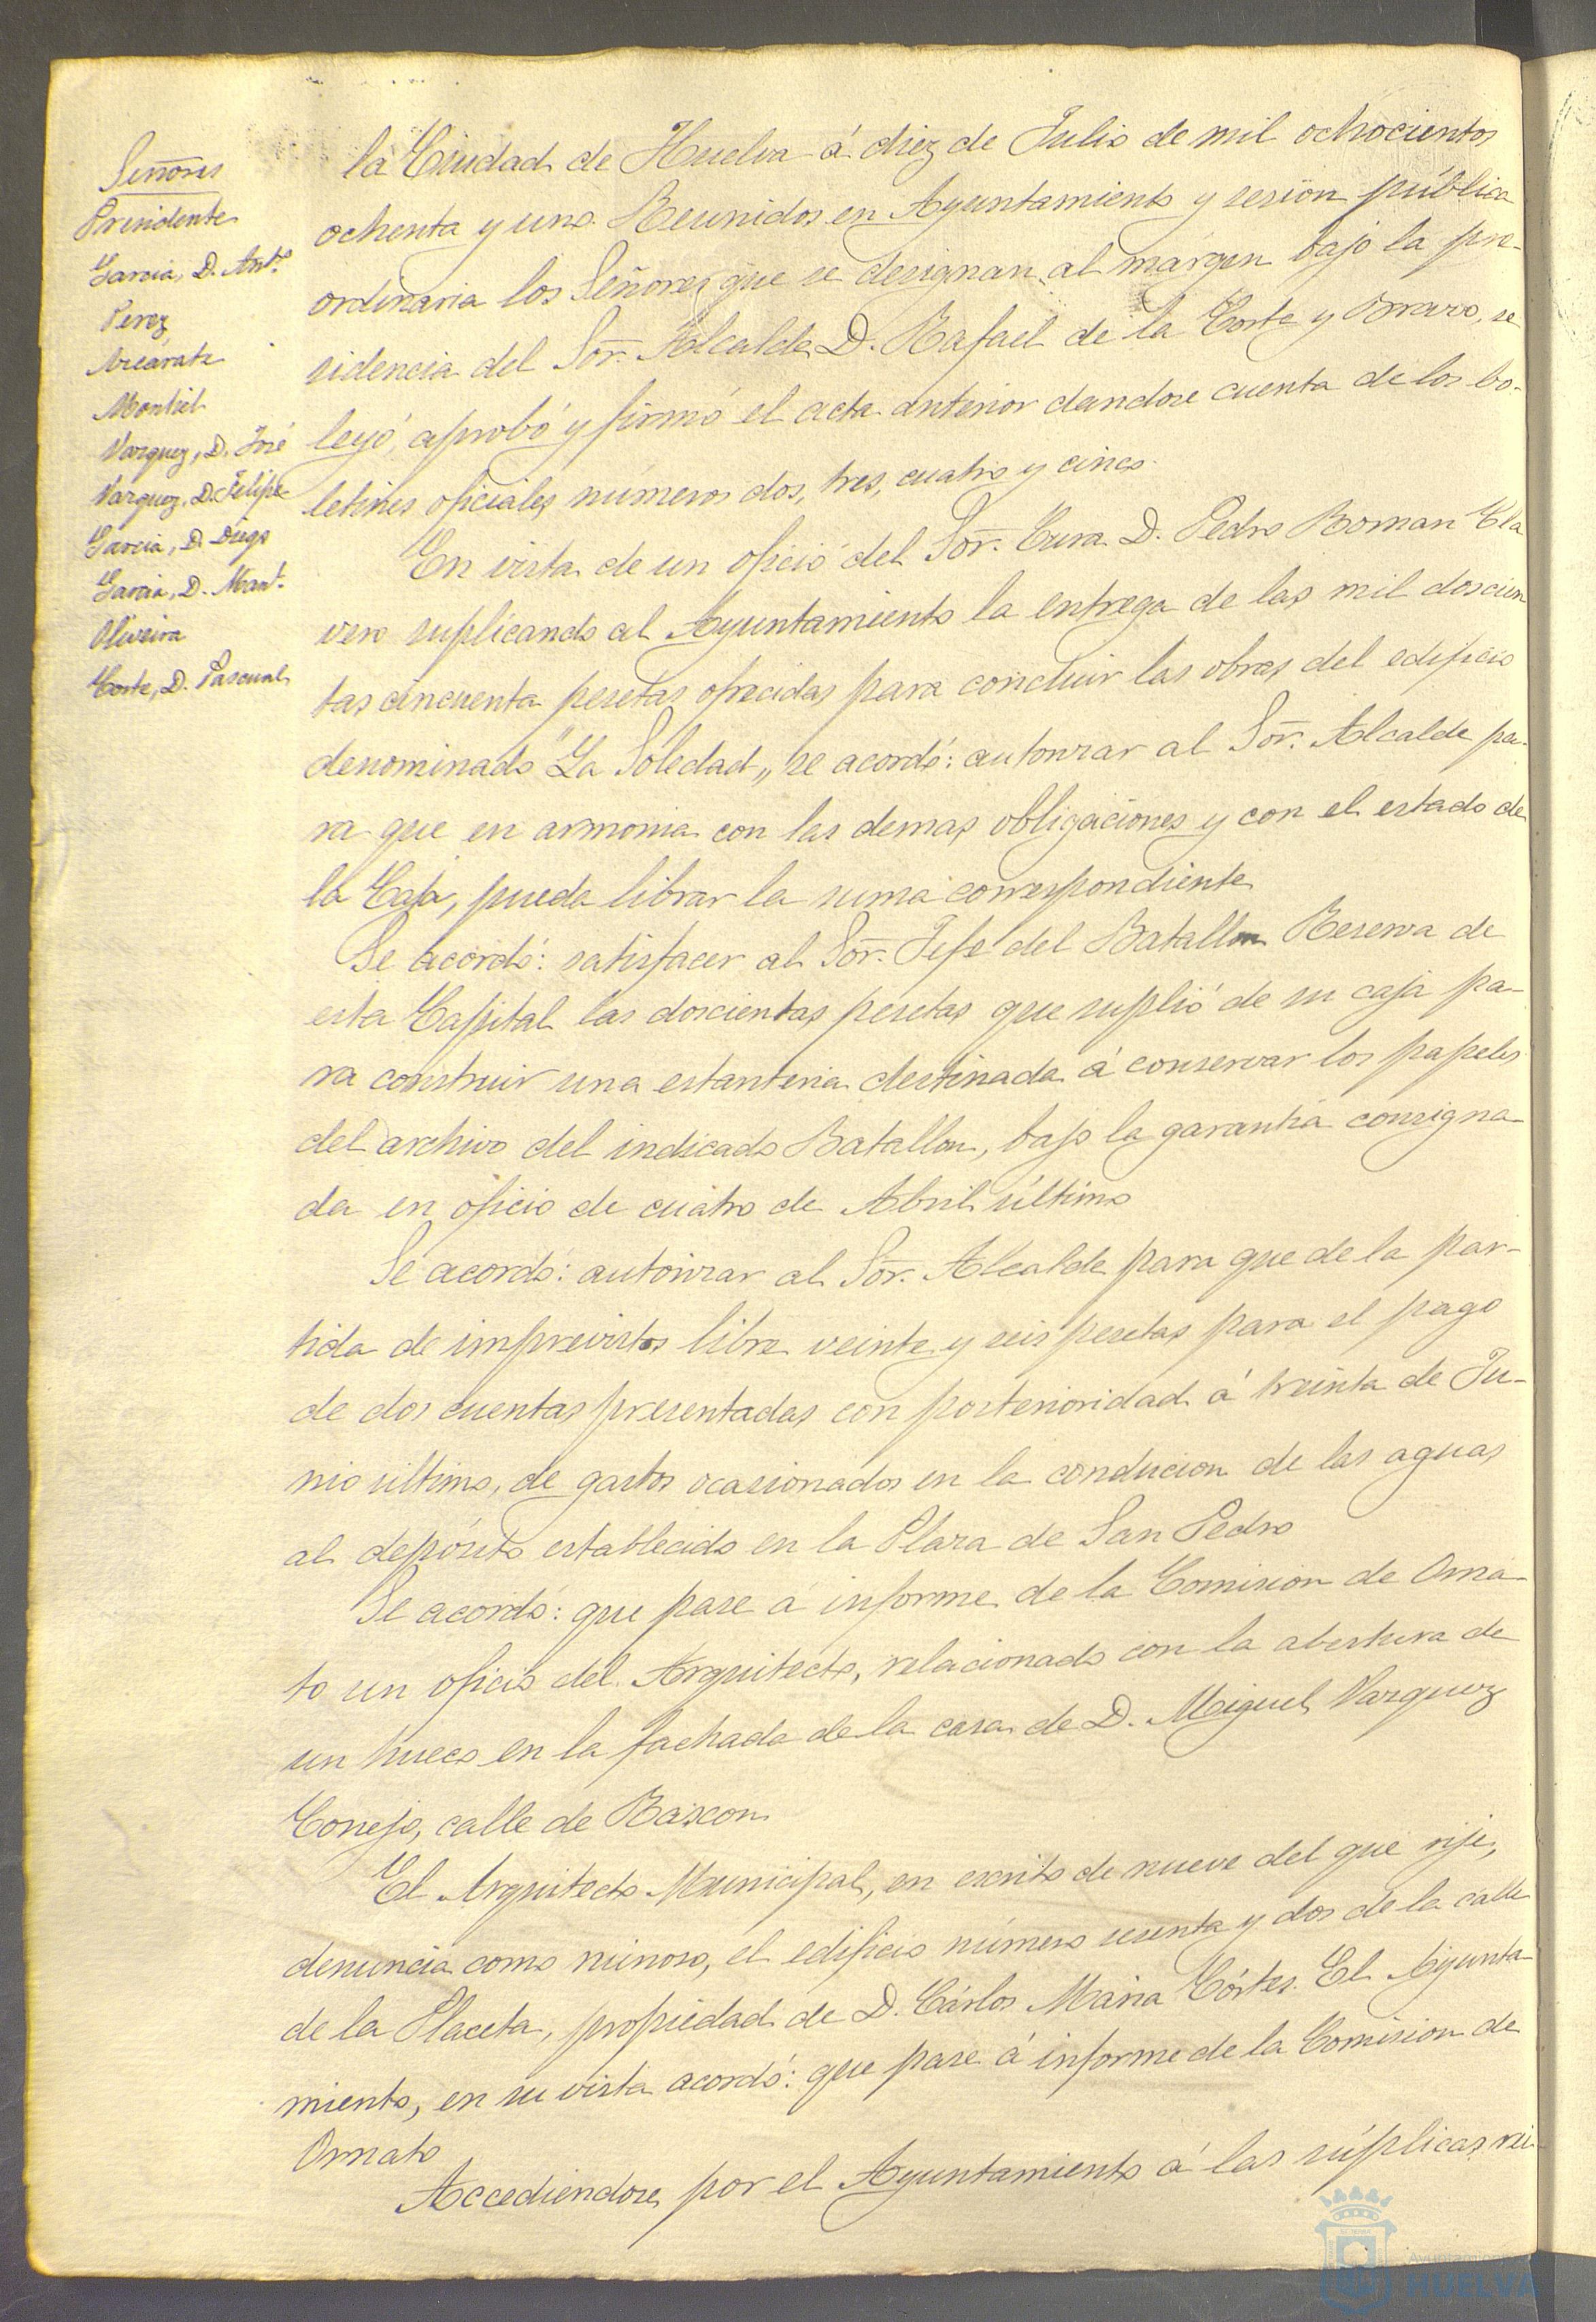 Señores
Presidente
Garcia, D. Antº
Perez
Azcárate
Montiel
Vazquez, D. José
Vazquez, D. Felipe
Garcia, D. Diego
Garcia, D. Manl.
Oliveira
Corte, D. Pascual
la Ciudad de Huelva á diez de Julio de mil ochocientos
ochenta y uno. Reunidos en Ayuntamiento y sesion pública
ordinaria los Señores que se designan al márgen bajo la pre-
sidencia del Sor. Alcalde D. Rafael de la Corte y Bravo, se
leyó, aprobó y firmó el acta anterior dandose cuenta de los bo-
letines oficiales números dos, tres, cuatro y cinco.
En vista de un oficio del Sor. Cura D. Pedro Roman Cla
vero suplicando al Ayuntamiento la entrega de las mil doscien
tas cincuenta pesetas ofrecidas para concluir las obras del edificio
denominado "La Soledad„ se acordó: autorizar al Sor. Alcalde pa-
ra que en armonia con las demas obligaciones y con el estado de
la Caja, pueda librar la suma correspondiente
Se acordó: satisfacer al Sor. Jefe del Batallon Reserva de
esta Capital las doscientas pesetas que suplió de su caja pa-
ra construir una estanteria destinada á conservar los papeles
del archivo del indicado Batallon, bajo la garantia consigna-
da en oficio de cuatro de Abril último
Se acordó: autorizar al Sor. Alcalde para que de la par-
tida de imprevistos libre veinte y seis pesetas para el pago
de dos cuentas presentadas con posterioridad á treinta de Ju-
nio último, de gastos ocasionados en la conducion de las aguas
al depósito establecido en la Plaza de San Pedro
Se acordó: que pase á informe de la Comision de Orna-
to un oficio del Arquitecto, relacionado con la abertura de
un hueco en la fachada de la casa de D. Miguel Vazquez
Conejo, calle de Rascon.
El Arquitecto Municipal, en escrito de nueve del que rije,
denuncia como ruinoso, el edificio número sesenta y dos de la calle
de la Placeta, propiedad de D. Cárlos Maria Córtes. El Ayunta-
miento, en su vista acordó: que pase á informe de la Comision de
Ornato
Accediendose por el Ayuntamiento á las súplicas rei-
HUELVA